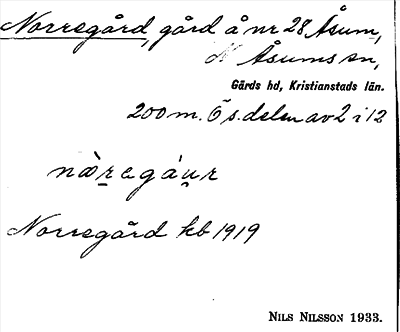 Norregård, gård å nr 28 Åsum,
N Åsums sn,
Gärds hd, Kristianstads län.
200 m. Ö s. delen av 2 i 12
nær̲egáu̯r
Norregård kb 1919
NILS NILSSON 1933.